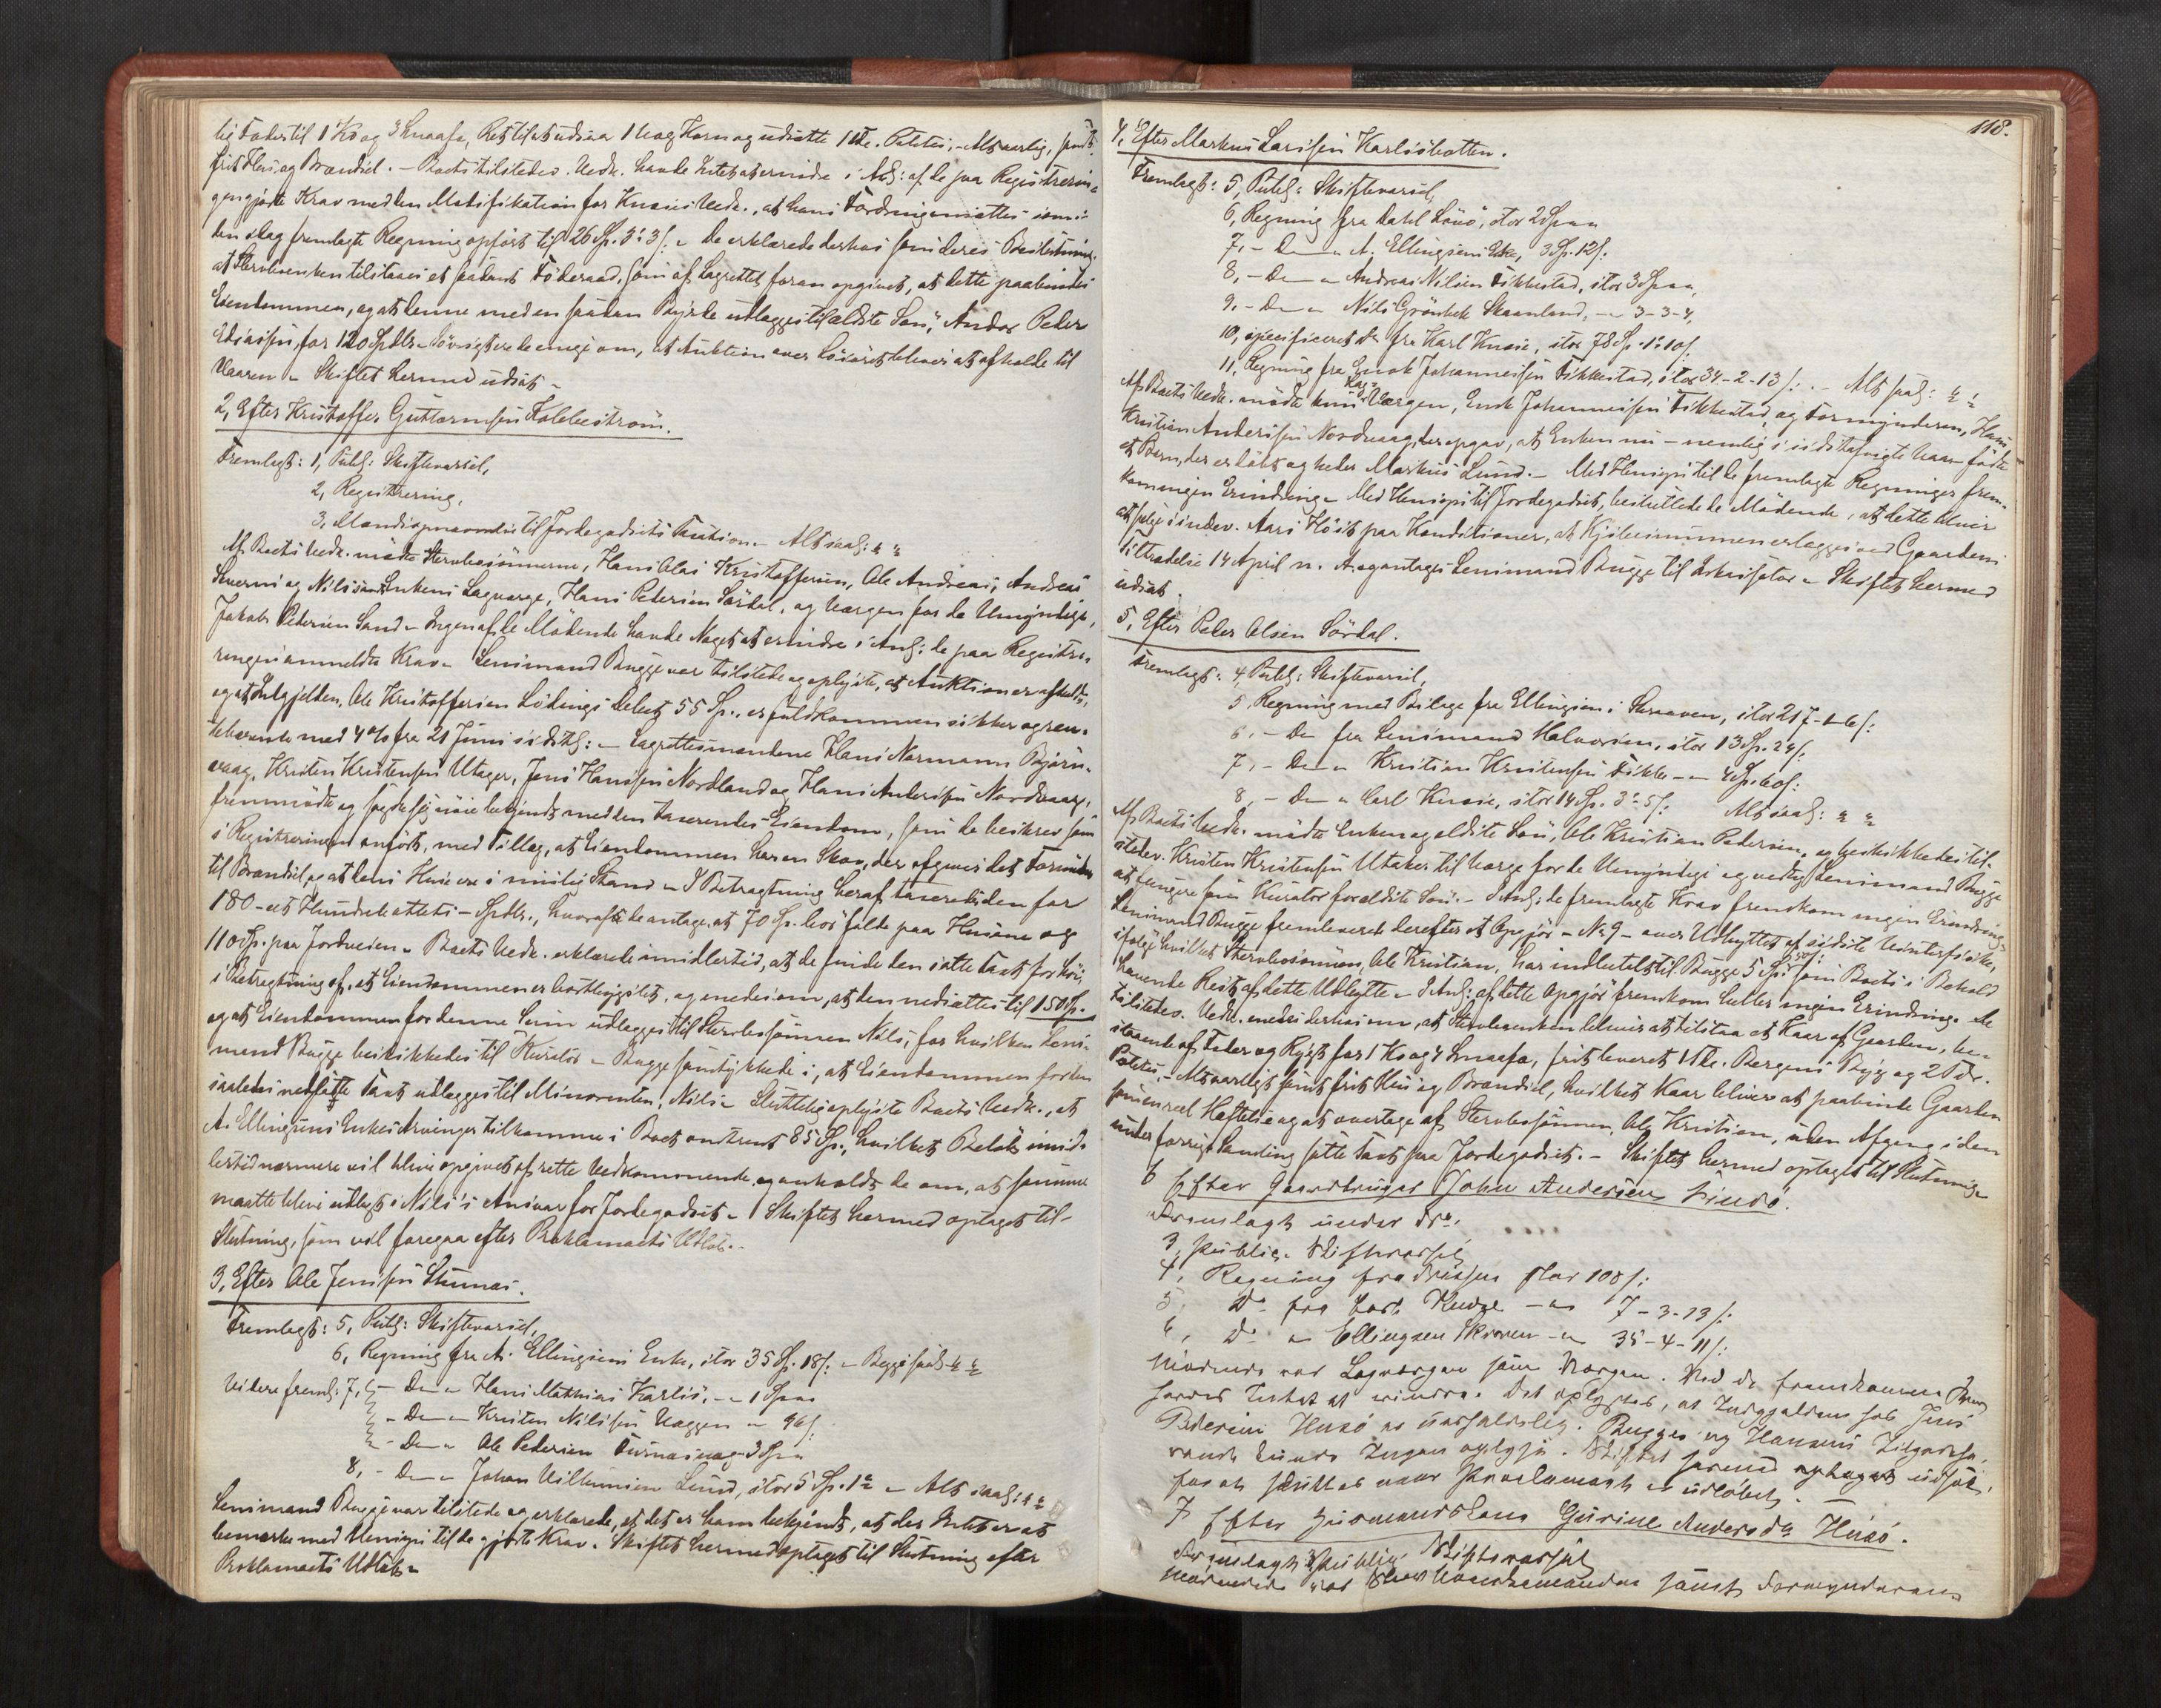 til 1 Ko og 3 Smaafæ, Ret til at udsaa 1 Vog Korn og udsætte 1 Tde. Poteter, - Alt aarlig, samt
frit Huus og Brændsel. - Boets tilstedev. Vedk. havde Intet at erindre i Anl: af de paa Registrerin-
gen gjorte Krav med den Modifikation for Knaus Vedk., at hans Fordring ansættes som i
den idag fremlagte Regning opført til 26 Sp. 3 ʺ 3 s: - De erklærede derhos som deres Beslutning,
at Stervboenken tilstaaes et saadant Föderaad, som af Lagrettet foran opgivet, at dette paabindes
Eiendommen, og at denne med en saadan Byrde udlægges til ældste Søn, Andor Peder
for 120 Spdlr. - Iövrigt vare de enige om, at Auktion over Lösöret bliver at afholde til
Vaaren - Skiftet hermed udsat -
2, Efter Kristoffer Guttormsen Kobbeström.
Fremlagt: 1, Publ: Skiftevarsel,
2, Registrering,
3, til Jordegodsets Taxation. - Alt saal:
Af Boets Vedk. mødte Stervbosönnerne, Hans Olai Kristoffersen, Ole Andreas, Andreas
og Nils samt Enkens Lagværge, Hans Pedersen Sördal, og Værgen for de Umyndige,
Jakob Pedersen Sand - Ingen af de Mödende havde Noget at erindre i Anl: de paa Registre-
ringen anmeldte Krav - Lensmand Bugge var tilstede og oplyste, at Auktion er afholdt,
og at Indgjelden, Ole Kristoffersen Lödings Belöb 55 Sp., er fuldkommen sikker og ren-
tebærende med 4% fra 21 Juni sidstl: - Lagrettesmændene Hans Normann Bjørn-
vaag, Kristen Kristensen Utager, Jens Hansen Nordland og Hans Andersen Nordvaag,
fremmødte og sagde sig nöie bekjendt med den taxerendes Eiendom, som de beskrev som
i Registreringen anført, med Tillæg, at Eiendommen har en Skov, der afgiver det Fornødne
til Brændsel, og at dens Huse ere i maadelig Stand - I Betragtning heraf taxeredes den for
180 - eet Hundrede otteti - Spdlr., hvoraf de antage, at 70 Sp. bör falde paa Husene og
110 Sp. paa Jordveien - Boets Vedk. erklærede imidlertid, at de finde den satte Taxt for höi,
i Betragtning af, at Eiendommen er bortbygslet, og enedes om, at den nedsættes til 150 Sp.
og at Eiendommen for denne Sum udlægges til Stervbosönnen Nils, for hvilken Lens-
mand Bugge beskikkedes til Kurator - Bugge samtykkede i, at Eiendommen for den
saaledes nedsatte Taxt udlægges til Minorenten, Nils - Slutteligen oplyste Boets Vedk., at
A. Ellingsens Enkes Arvinger tilkomme i Boet omtrent 85 Sp., hvilket Belöb imid-
lertid nærmere vil blive opgivet af rette Vedkommende, og anholdt de om, at samme
maatte blive udlagt i Nils's Ansvar for Jordegodset - Skiftet hermed optaget til
Slutning, som vil foregaa efter Proklamaets Udlöb. -
3, Efter Ole Jensen Stennæs.
Fremlagt: 5, Publ: Skiftevarsel,
6, Regning fra A. Ellingsens Enke, stor 35 Sp. 18 s: - Begge saal:
Videre freml: 7, - Do - Hans Mathias Karlsö, - 1 Spd
- Do - Kristen Nilssen Vaggen - 96 s:
- Do - Ole Pedersen - 3 Spd
8, - Do - Johan Villumsen Lund, stor 5 Sp. 1 - Alt saal:
Lensmand Bugge var tilstede og erklærede, at det er ham bekjendt, at der Intet er at
bemærke med Hensyn til de gjorte Krav. Skiftet hermed optaget til Slutning efter
Proklamaets Udlöb -
118.
4, Efter Markus Larssen Karlsöhatten.
Fremlagt: 5, Publ: Skiftevarsel,
6, Regning fra Dahl Löuö, stor 2 Spd
7, - Do - A. Ellingsens Enke, 3 Sp. 12 s:
8, - Do - Andreas Nilsen Fikkestad, stor 3 Spd,
9, - Do - Nils Grönbek Skaanland, - 3-3-4,
10, specificeret Do fra Karl Knaus, stor 78 Sp. 1 10 s:
11, Regning fra Enok Johannessen Fikkestad, stor 34-2-13 s: - Alt saal:
Af Boets Vedk. mødte kun Værgen, Enok Johannessen Fikkestad, og Formynderen, Hans
Kristian Andersen Nordvaag, der opgav, at Enken nu - nemlig i sidstafvigte Vaar - fødte
et Barn, der er döbt og heder Markus Lund. - Med Hensyn til de fremlagte Regninger frem-
kom ingen Erindring - Med Hensyn til Jordegodset, besluttede de Mödende, at dette bliver
at selge i indev. Aars Höst paa Konditioner, at Kjöbesummen erlægges ved Gaardens
Tiltrædelse 14 April n. A. og antages Lensmand Bugge til Inkassator - Skiftet hermed
udsat.
5, Efter Peder Olsen Sördal.
Fremlagt: 4, Publ: Skiftevarsel,
5, Regning med Bilage fra Ellingsen i Skraaven, stor 217-1-6 s:
6, - Do fra Lensmand Halvorsen, stor 13 Sp. 24 s:
7, - Do - Kristian Kristensen Fikke - 4 Sp. 60 s:
8, - Do - Carl Knaus, stor 14 Sp. 3 5 s: Alt saal:
Af Boets Vedk. mødte Enken og ældste Sön, Ole Kristian Pedersen, og beskikkedes til-
stedev. Kristen Kristensen Utaker til Værge for de Umyndige og vedtog Lensmand Bugge
at fungere som Kurator for ældste Sön. - I Anl: de fremlagte Krav fremkom ingen Erindring -
Lensmand Bugge fremleverede derefter et Opgjör - No 9 - over Udbyttet af sidste Vinterfiske,
ifølge hvilket Stervbosönnen, Ole Kristian, har indbetalt til Bugge 5 Sp. som Boets i Behold
havende Rest af dette Udbytte - I Anl: af dette Opgjör fremkom heller ingen Erindring. De
tilstedev. Vedk. enedes derhos om, at Stervboenken bliver at tilstaa et Kaar af Gaarden, be-
staaende af Foder og Rygt for 1 Ko og 4 Smaafæ, frit leveret 1 Tde. Bergens Byg og 2 Tdr.
Poteter, - Alt aarligt samt frit Hus og Brændsel, hvilket Kaar bliver at paabinde Gaarden
som en reel Heftelse og at overtage af Stervbosönnen Ole Kristian, uden Afgang i den
under forrige Samling satte Taxt paa Jordegodset. - Skiftet hermed optaget til Slutning -
6 Efter Gaardbruger John Andersen Finsö.
Fremlagt under Dr.
3, Public. Skiftevarsel
4, Regning fra stor 108 s:
5, Do fra Carl Knaus - 7-3-13 s:
6, Do - Ellingsen Skroven - 35-4-11 s:
Mødende var Lagværgen samt Værgen. Ved de fremkomne Krav
havdes Intet at erindre. Det oplystes, at Indgjelden hos Jens
Pedersen Husö er uerholdelig. Bugges og Hansens Tilgodeha-
vende kunde Ingen oplyse. Skiftet hermed optaget udsat,
for at sluttes naar Proclamaet er udløbet. -
7 Efter Huusmandskone Gurine Andersdr. Husö.
Fremlagt 3, Public. Skiftevarsel
Mødende var Enkemanden samt Formynderen